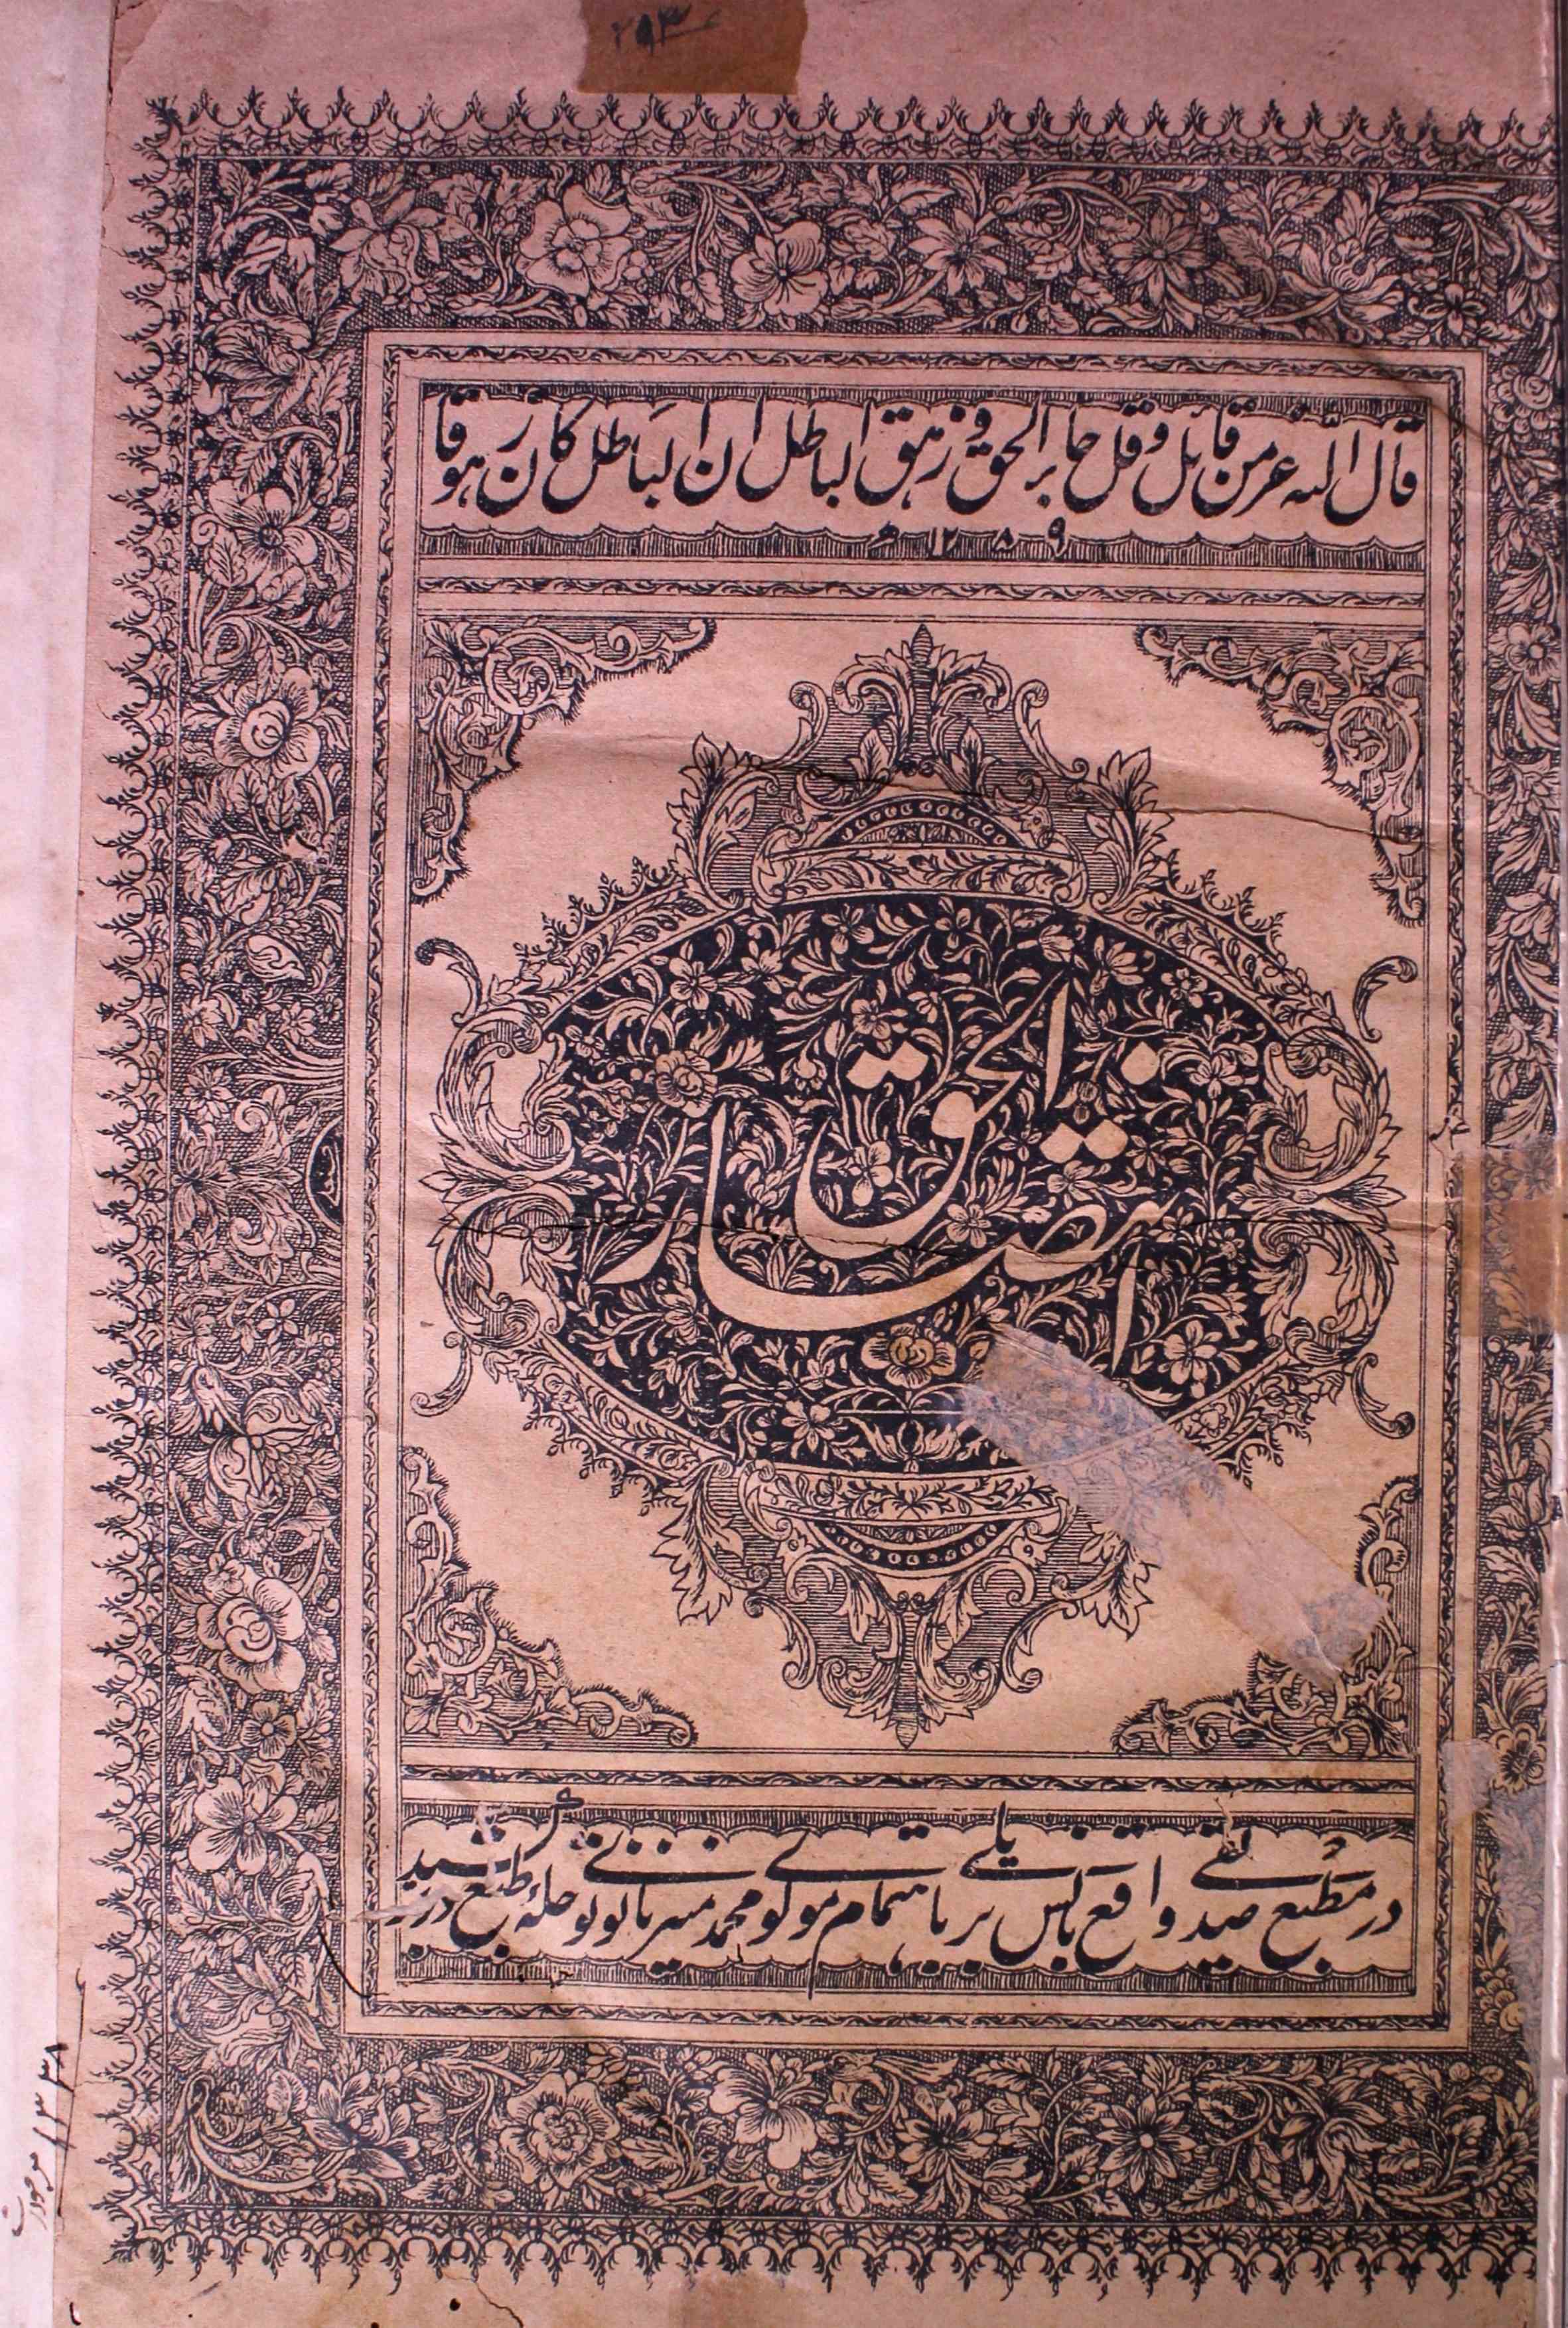 ۲۹۳
قال اللہ عز من قائل و قل جاء الحق و زہق الباطل ان الباطل کان زہوقا
۱۲۸۹ھ
انتصار الحق
در مطبع صدیقی واقع بانس بریلی باہتمام مولوی محمد منیر نانوتوی حلۂ طبع در بر کشید